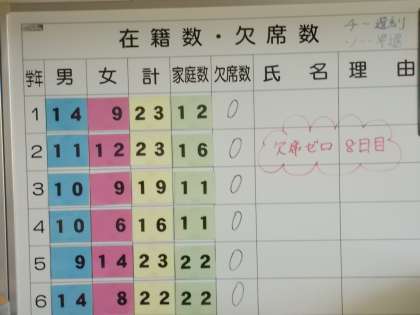 在籍数・欠席数
チ…遅刻
ソ…早退
学年 男 女 計 家庭数 欠席数 氏名 理由
1 14 9 23 12 0
2 11 12 23 16 0 欠席ゼロ 8日目
3 10 9 19 11 0
4 10 6 16 11 0
5 9 14 23 22 0
6 14 8 22 22 0